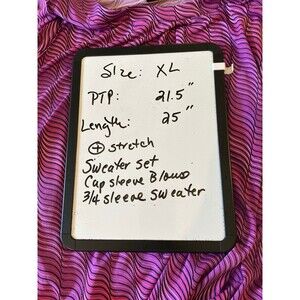 Size: XL
PTP: 21.5"
Length: 25"
⊕ stretch
Sweater set
Cap sleeve Blouse
3/4 sleeve sweater